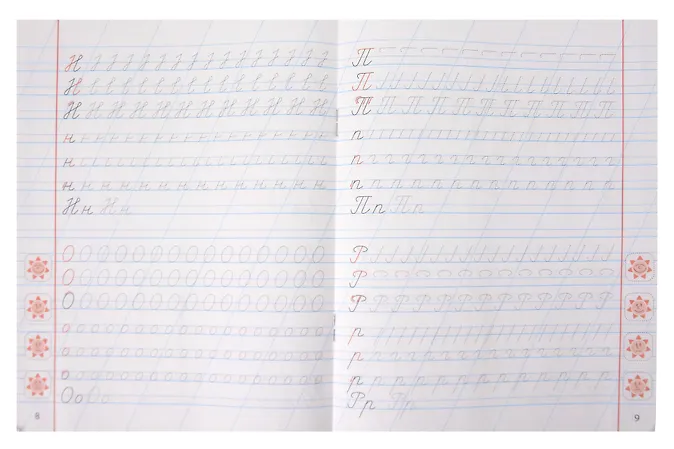 Н
Н
Н Н Н Н Н Н Н Н Н Н Н Н
н
н
н н н н н н н н н н н н н н
Нн Нн
О О О О О О О О О О О О О О О О
О О О О О О О О О О О О О О О О
О О О О О О О О О О О О О О О О
о о о о о о о о о о о о о о о о
о о о о о о о о о о о о о о о о
о о о о о о о о о о о о о о о о
Оо Оо
8
П
П
П П П П П П П П П П П
п
п
п п п п п п п п п п п п п п
Пп Пп
Р
Р
Р Р Р Р Р Р Р Р Р Р Р Р Р
р
р
р р р р р р р р р р р р р р
Рр Рр
9